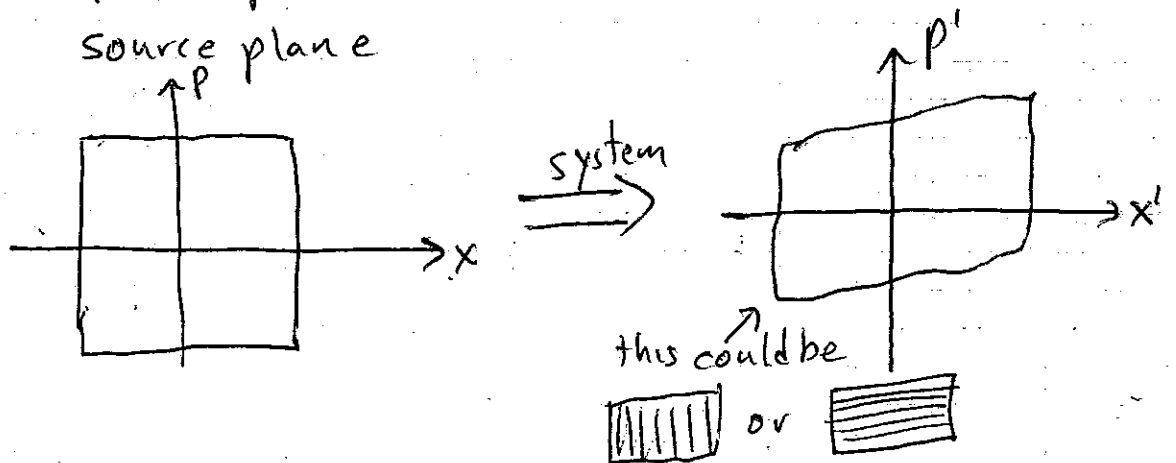 source plane
P
x
system
P'
x'
this could be
or